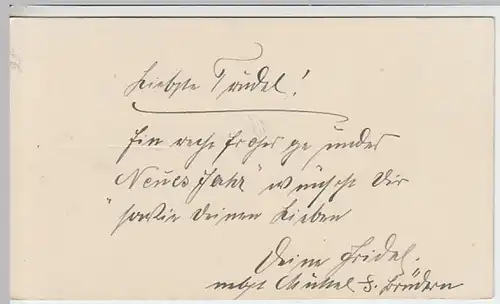 Liebste Trudel!
Ein recht frohes gesundes
"Neues Jahr" wünscht Dir
sowie Deinen Lieben
Deine Fridel.
nebst Brüdern